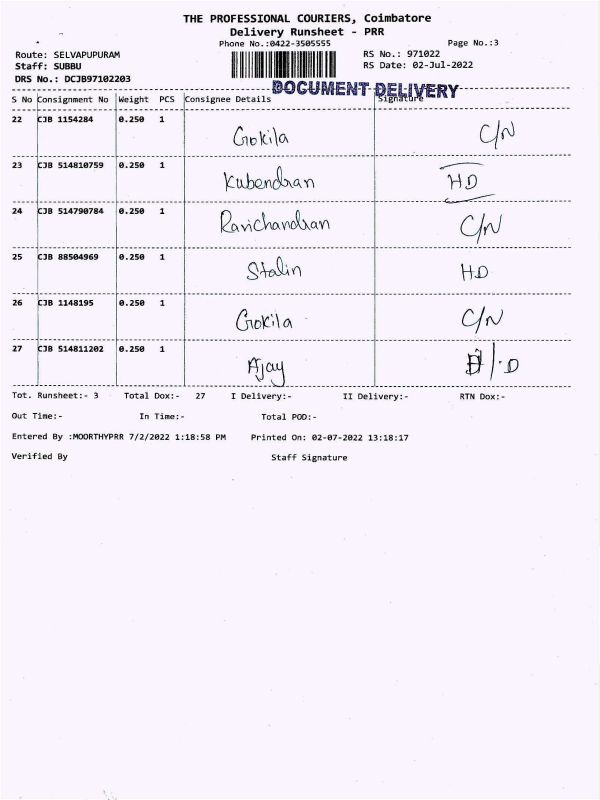 THE PROFESSIONAL COURIERS, Coimbatore
Delivery Runsheet - PRR
Phone No.:0422-3505555 Page No.:3
Route: SELVAPUPURAM RS No.: 971022
Staff: SUBBU RS Date: 02-Jul-2022
DRS No.: DCJB97102203
DOCUMENT DELIVERY
S No Consignment No Weight PCS Consignee Details Signature
22 CJB 1154284 0.250 1 Gokila C/N
23 CJB 514810759 0.250 1 Kubendran HD
24 CJB 514790784 0.250 1 Ravichandran C/N
25 CJB 88504969 0.250 1 Stalin HD
26 CJB 1148195 0.250 1 Gokila C/N
27 CJB 514811202 0.250 1 Ajay
Tot. Runsheet:- 3 Total Dox:- 27 I Delivery:- II Delivery:- RTN Dox:-
Out Time:- In Time:- Total POD:-
Entered By :MOORTHYPRR 7/2/2022 1:18:58 PM Printed On: 02-07-2022 13:18:17
Verified By Staff Signature